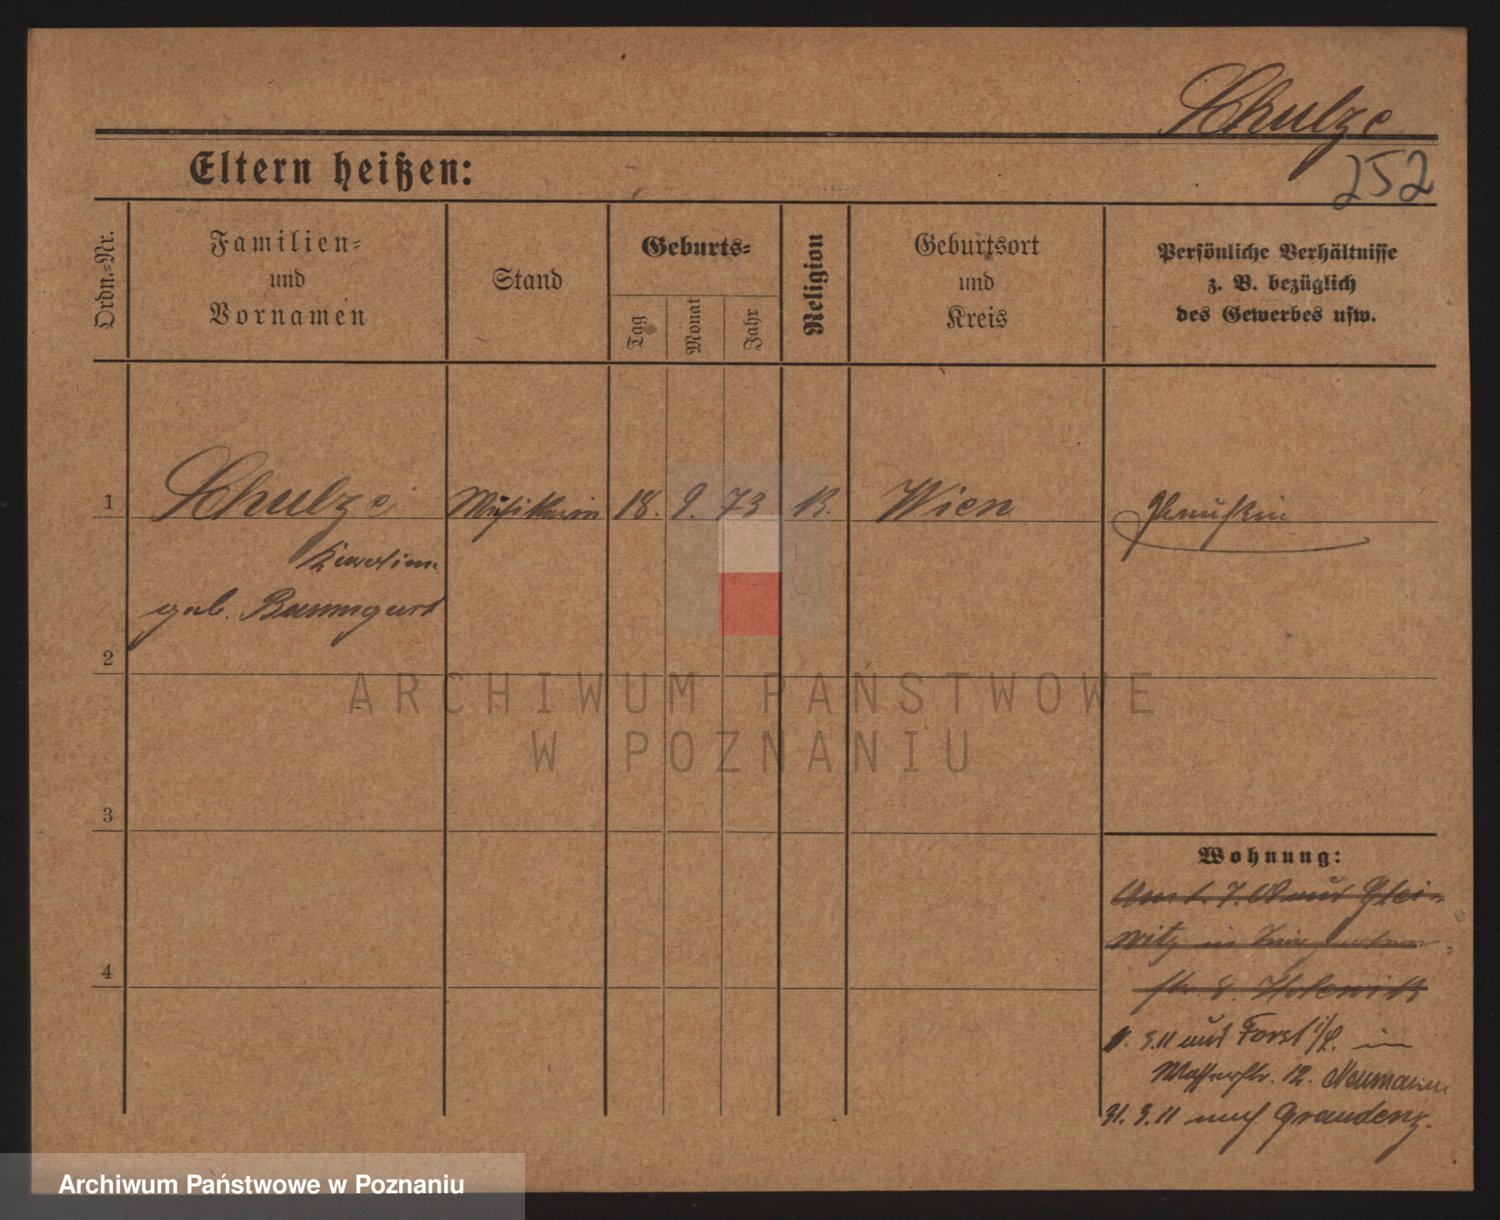 Schulze
252
Eltern heißen:
Ordn.=Nr.
Familien=
und
Vornamen
Stand
Geburts=
Tag
Monat
Jahr
Religion
Geburtsort
und
Kreis
Persönliche Verhältnisse
z. B. bezüglich
des Gewerbes usw.
1
Schulze Musikerin 18. 9. 73 K. Wien Preußin
geb. Baumgart
2
ARCHIWUM PAŃSTWOWE
W POZNANIU
3
Wohnung:
aus Glei-
witz in
4
1. 3.11 aus Forst i/L. in
Wasserstr. 12. Neumann
31. 3. 11 nach Graudenz.
Archiwum Państwowe w Poznaniu